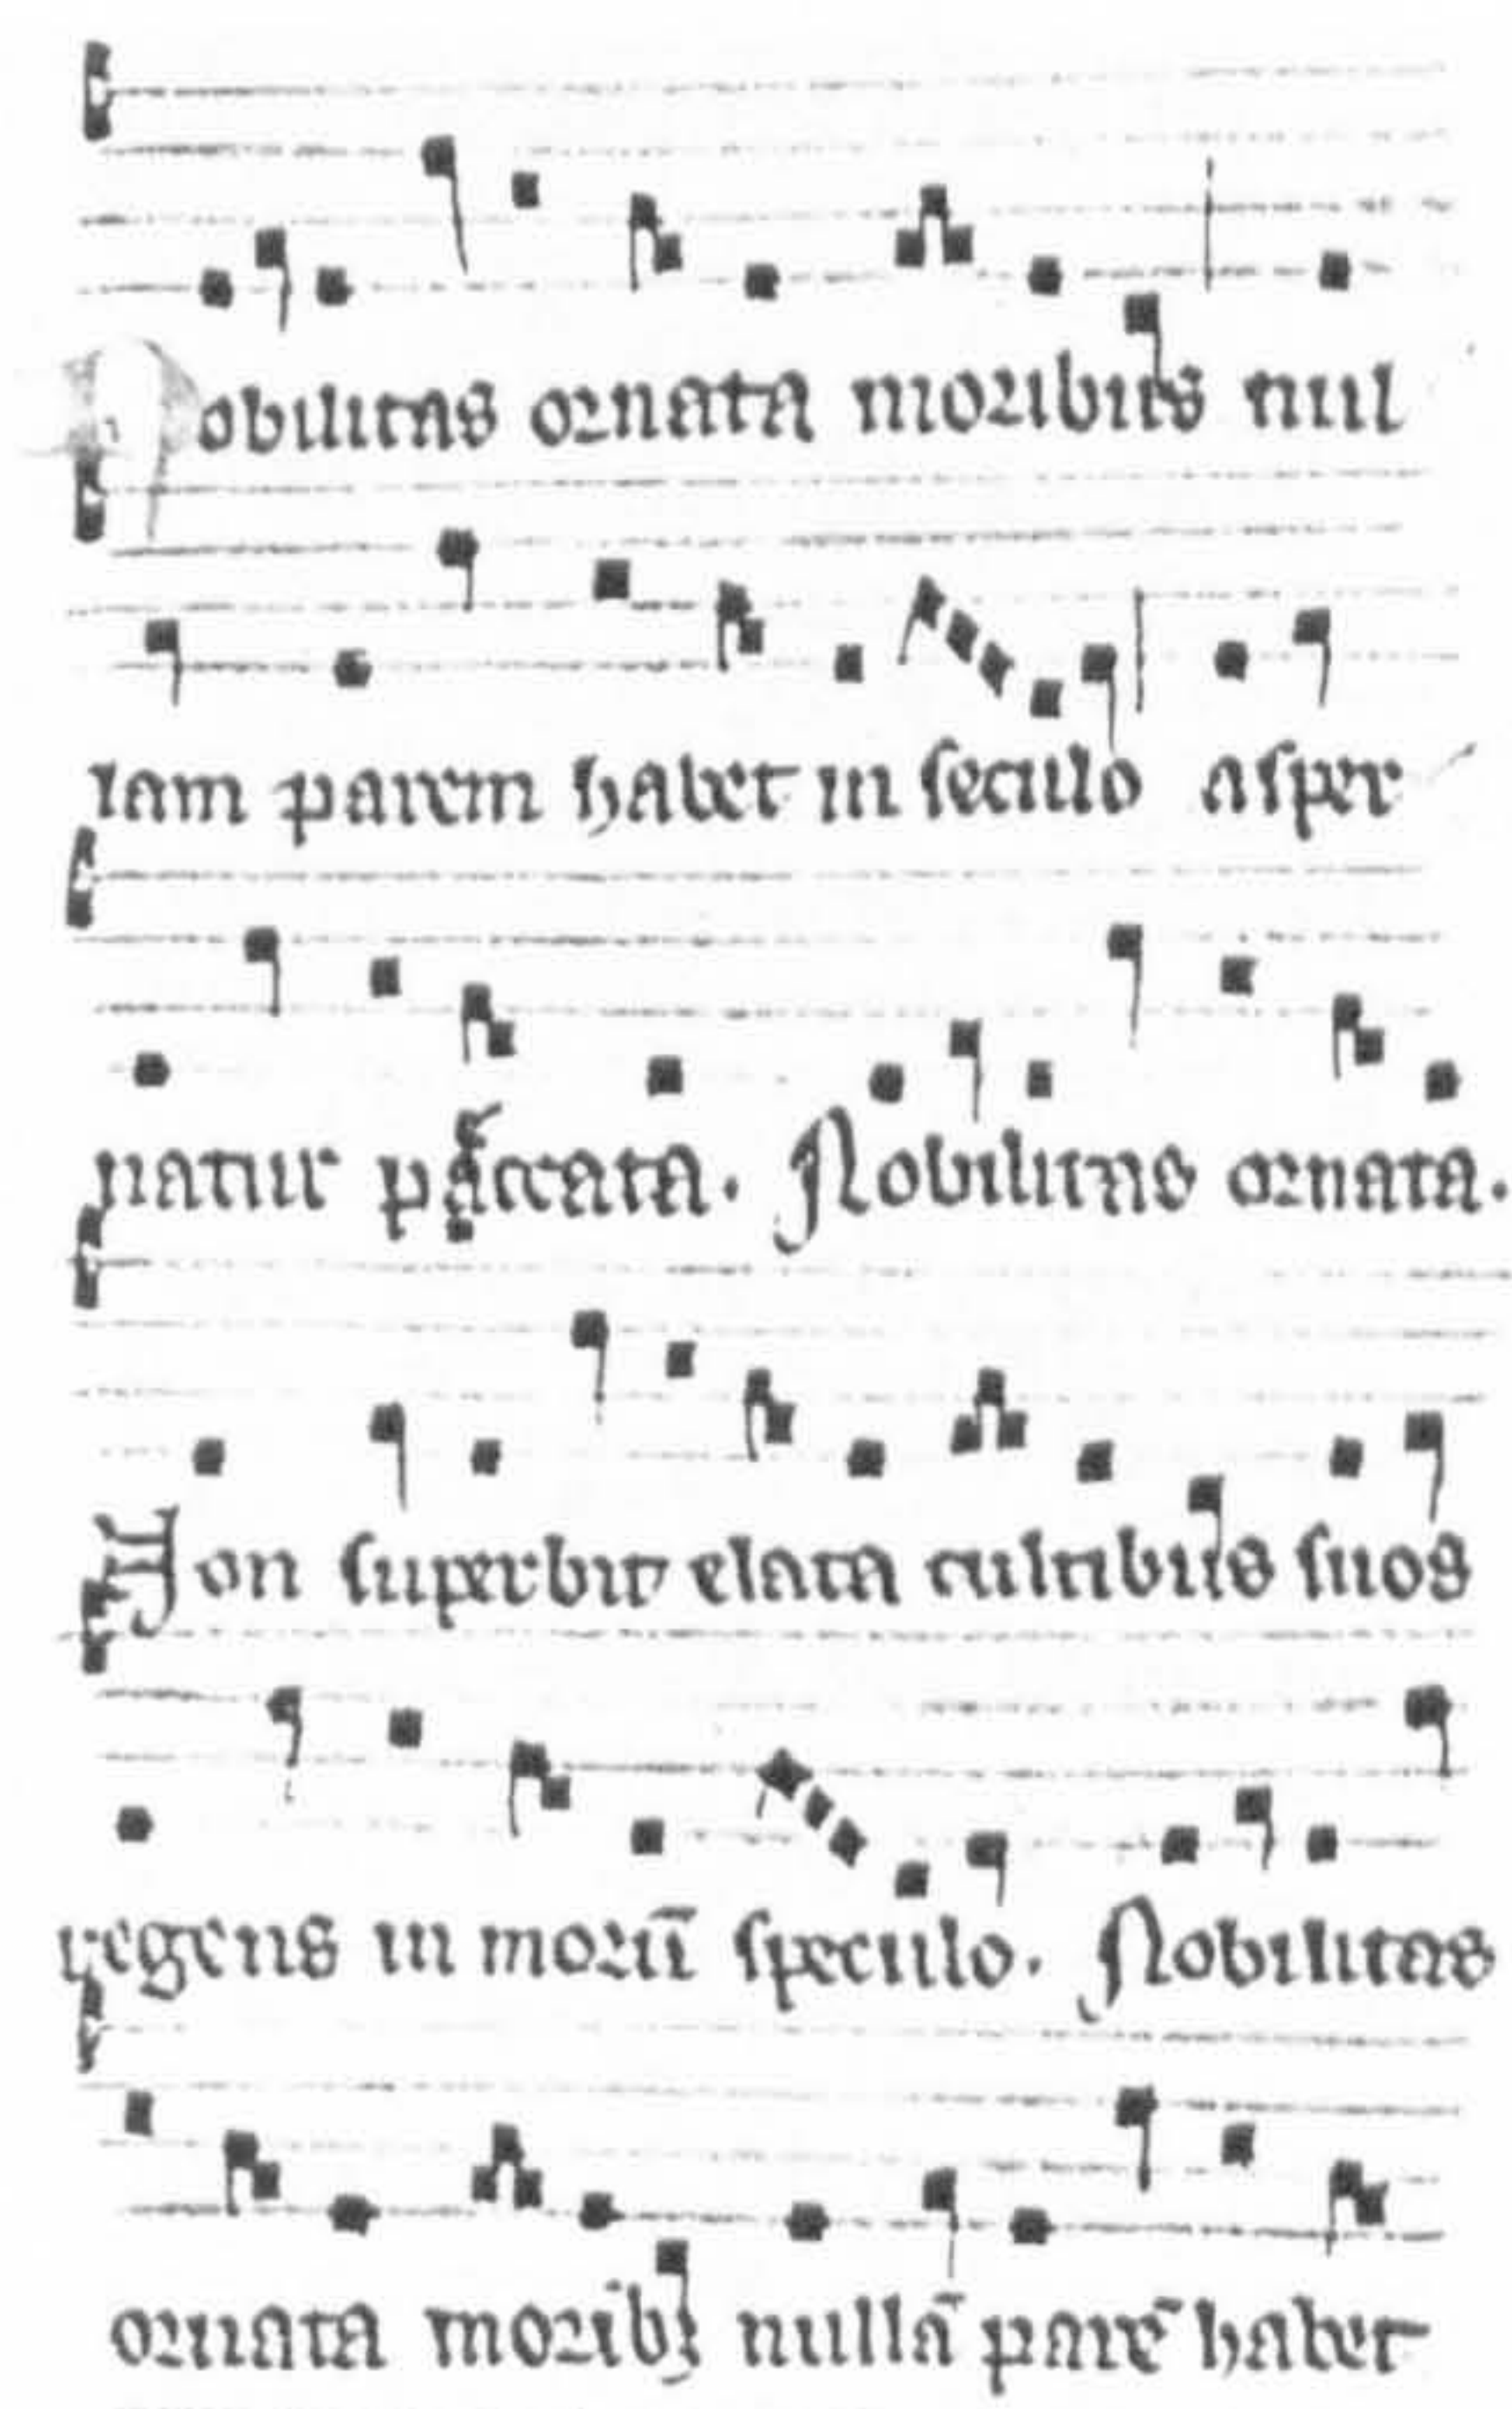 Nobilitas ornata moribus nul
lam parem habet in seculo asper
natur peccata. Nobilitas ornata.
Non superbit elata cultibus suos
regens in morū speculo. Nobilitas
ornata moribꝫ nullā parē habet